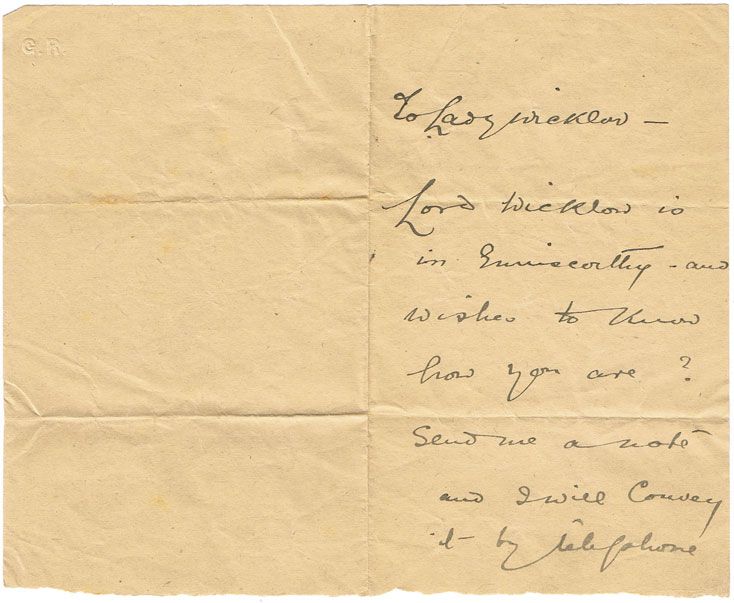 G.R.
To Lady Wicklow —
Lord Wicklow is
in Enniscorthy - and
wishes to know
how you are ?
Send me a note
and I will Convey
it by telephone